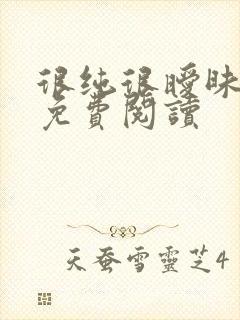 很纯很曖昧
免費閱讀
天蚕雪靈芝4